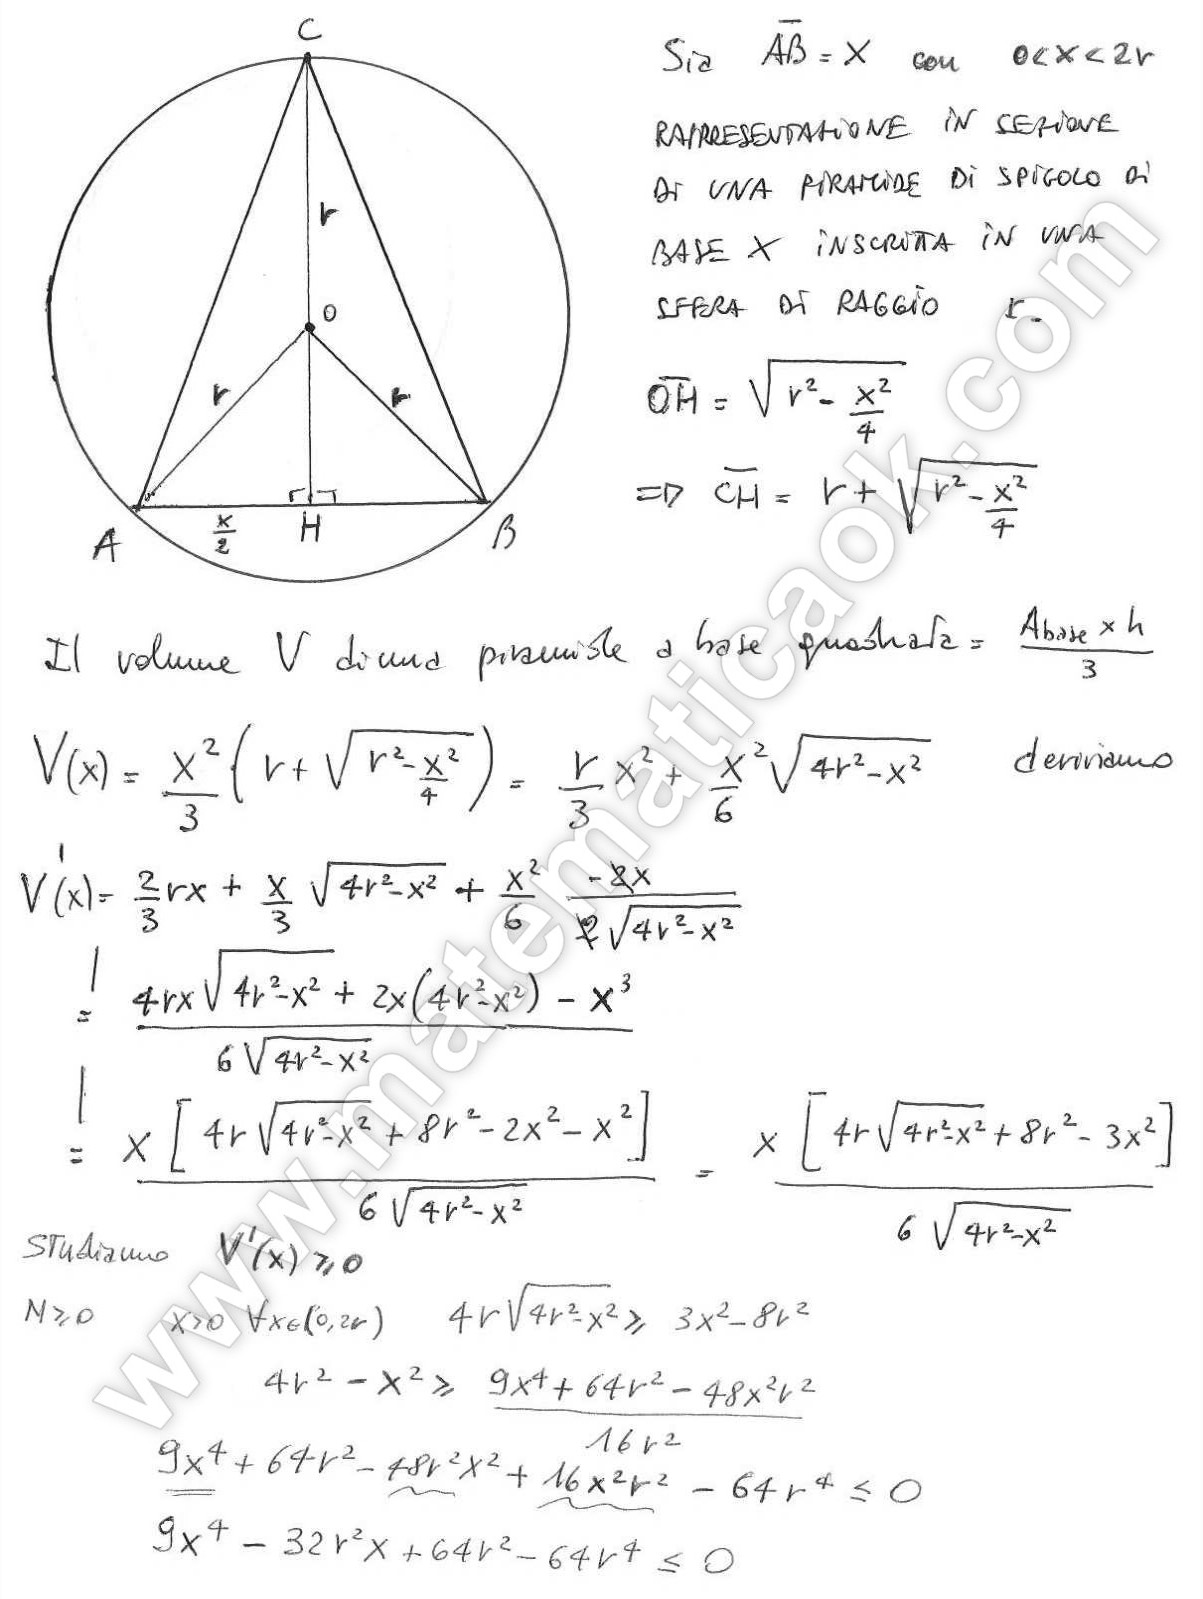 C
r
O
r
r
A
x/2
H
B
Sia AB = x con 0 < x < 2r
RAPPRESENTAZIONE IN SEZIONE
DI UNA PIRAMIDE DI SPIGOLO DI
BASE X INSCRITTA IN UNA
SFERA DI RAGGIO r.
OH = √(r² - x²/4)
=> CH = r + √(r² - x²/4)
Il volume V di una piramide a base quadrata = (Abase × h)/3
V(x) = x²/3 (r + √(r² - x²/4)) = r/3 x² + x²/6 √(4r² - x²) deriviamo
V'(x) = 2/3 rx + x/3 √(4r² - x²) + x²/6 (-2x)/(2√(4r² - x²))
= (4rx√(4r² - x²) + 2x(4r² - x²) - x³)/(6√(4r² - x²))
= x[4r√(4r² - x²) + 8r² - 2x² - x²]/(6√(4r² - x²)) = x[4r√(4r² - x²) + 8r² - 3x²]/(6√(4r² - x²))
Studiamo V'(x) ≥ 0
N ≥ 0 x > 0 ∀x∈(0,2r) 4r√(4r² - x²) ≥ 3x² - 8r²
4r² - x² ≥ (9x⁴ + 64r² - 48x²r²)/(16r²)
9x⁴ + 64r² - 48r²x² + 16x²r² - 64r⁴ ≤ 0
9x⁴ - 32r²x + 64r² - 64r⁴ ≤ 0
www.matematicaok.com